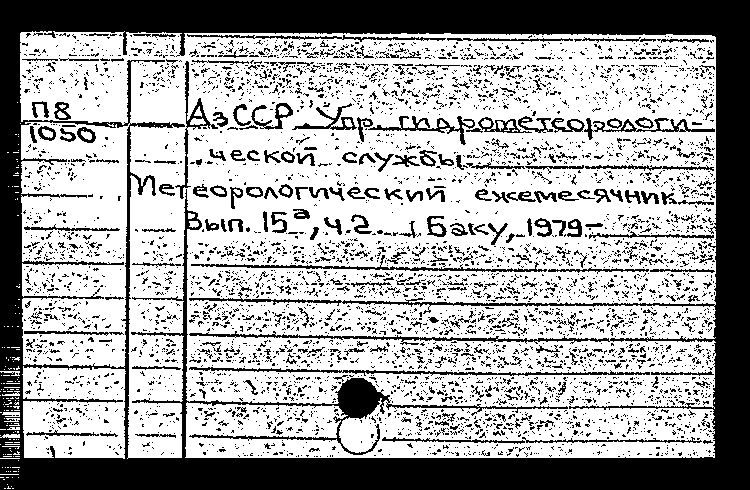 П8
1050
АзССР. Упр. гидрометеорологи-
ческой службы.
Метеорологический ежемесячник.
Вып. 15а, ч.2. Баку, 1979-